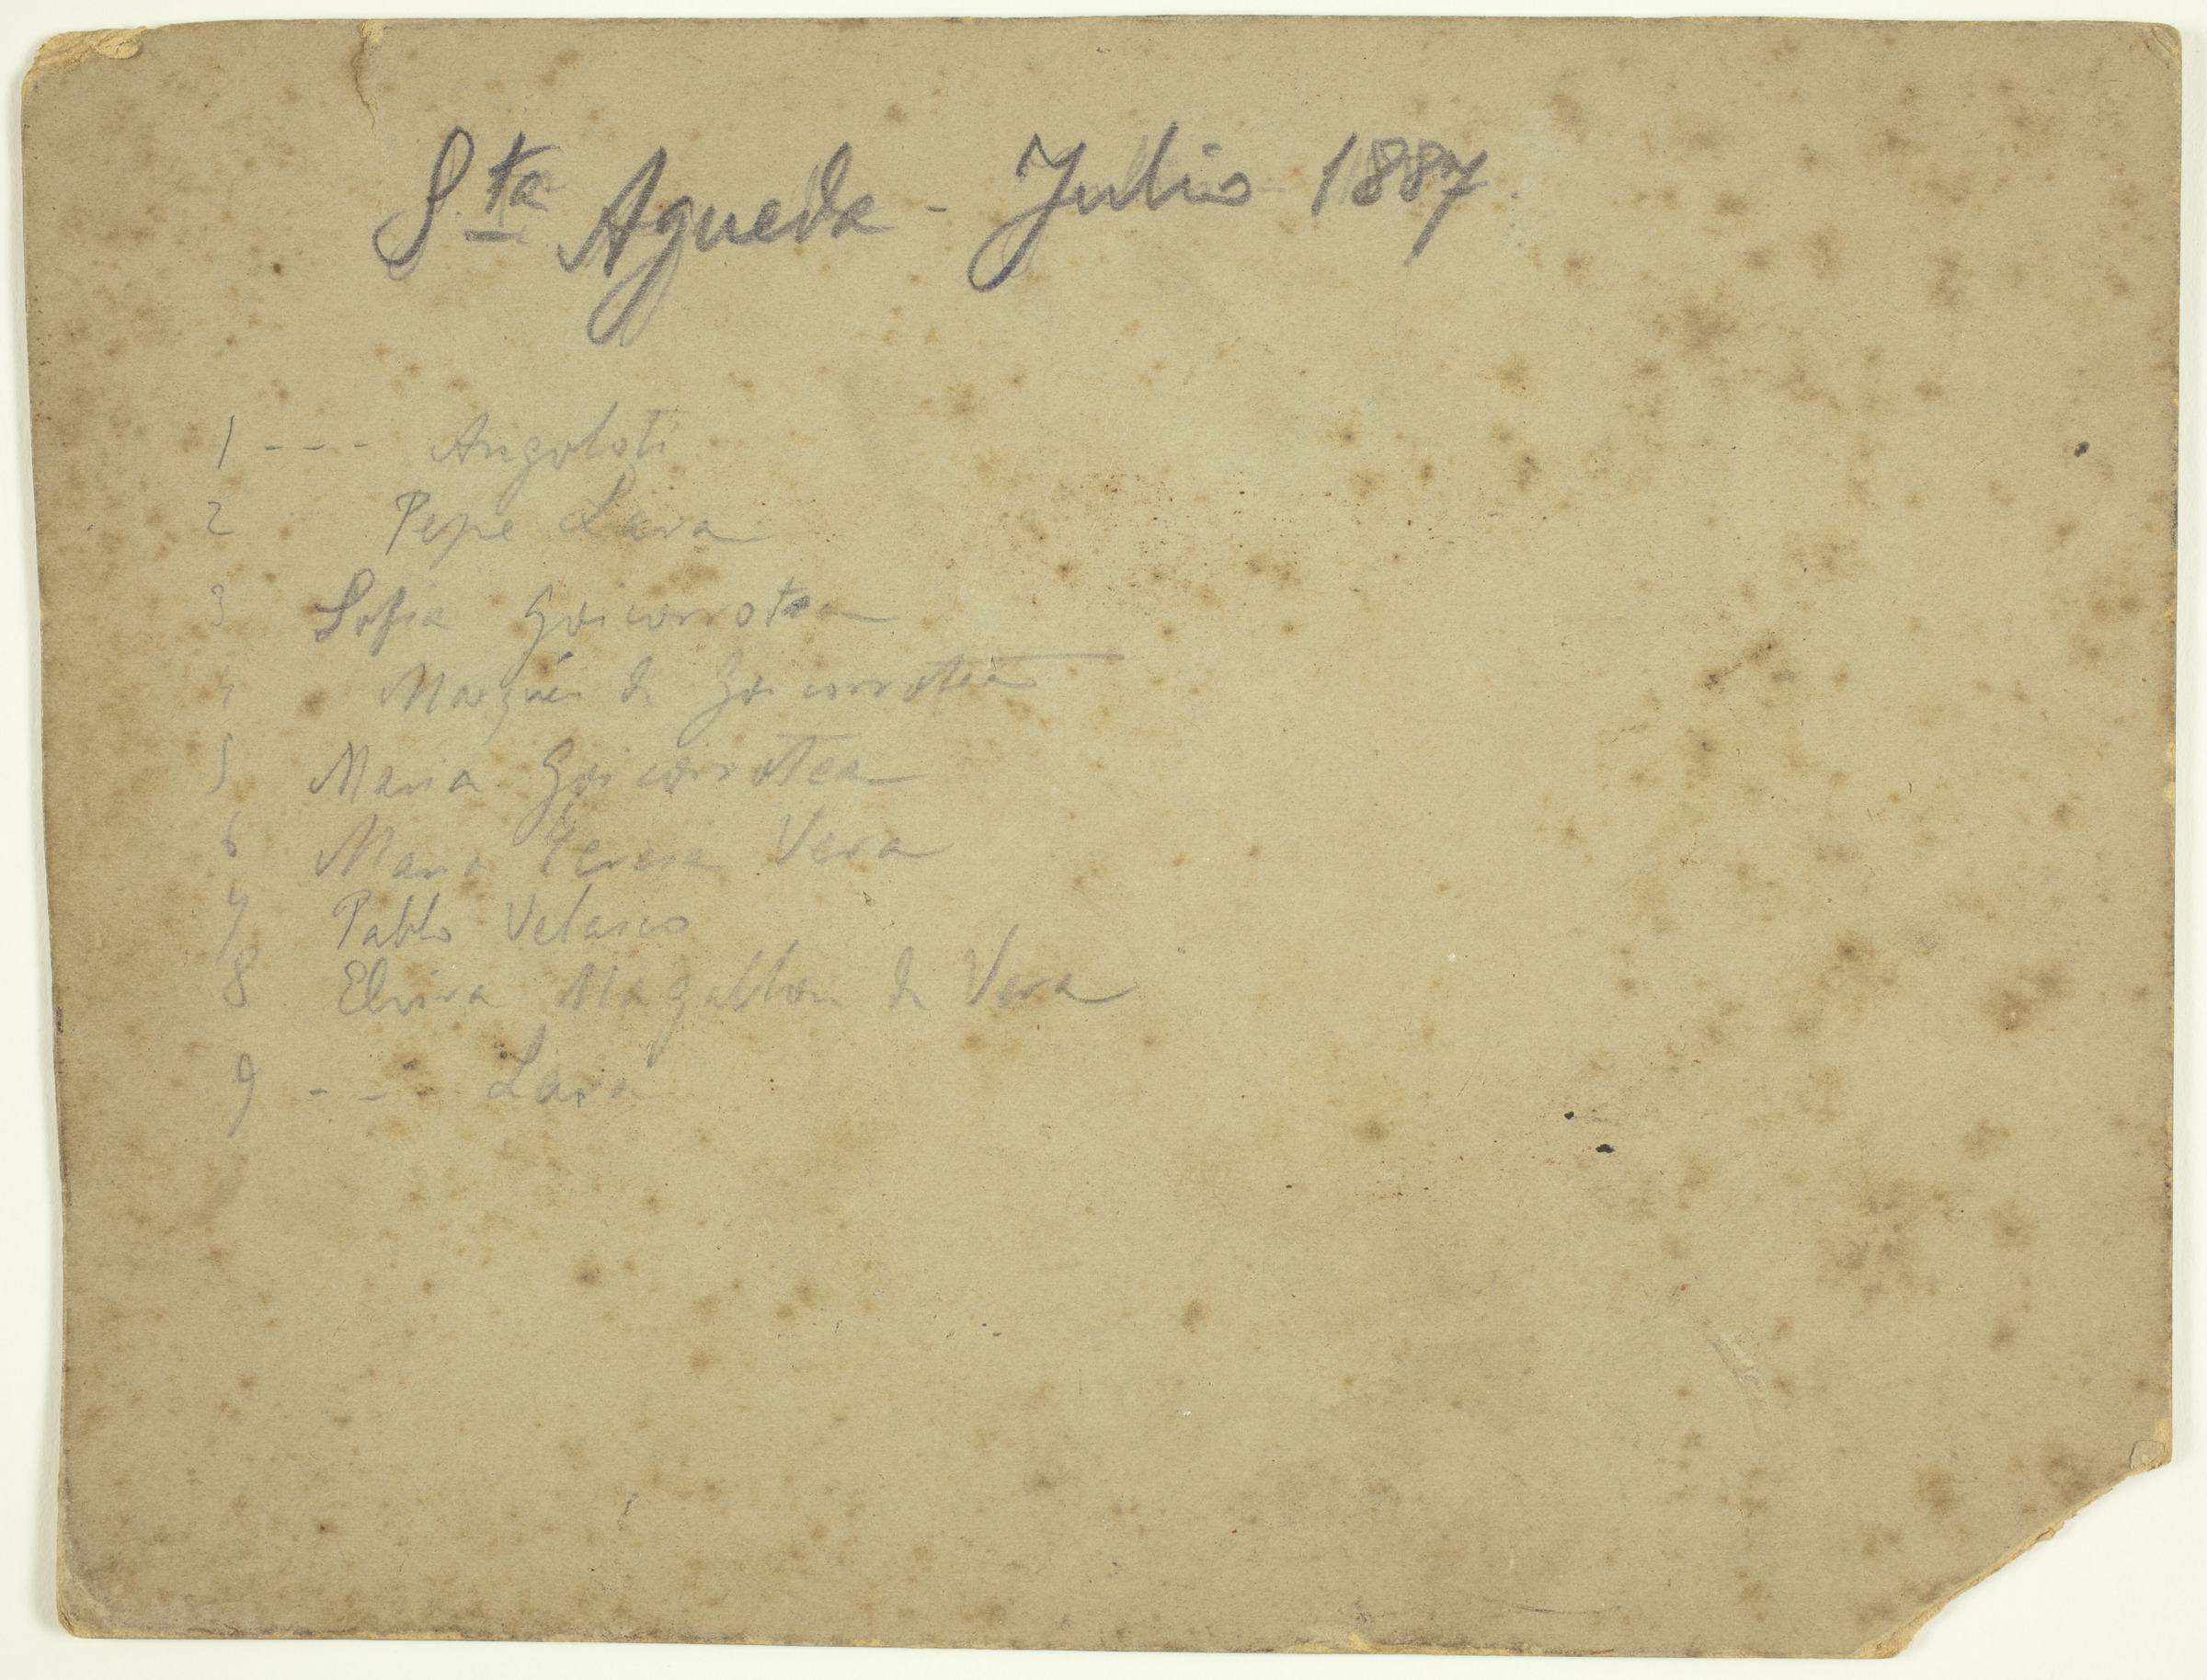 Sta Agueda - Julio 1887.
1 - - - Angoloti
2 Pepe Lara
3 Sofia Goicorrotea
4 Marqués de Goicorrotea
5 Maria Goicorrotea
6 Maria Teresa Vera
7 Pablo Velasco
8 Elvira Magallon de Vera
9 - - - Lara